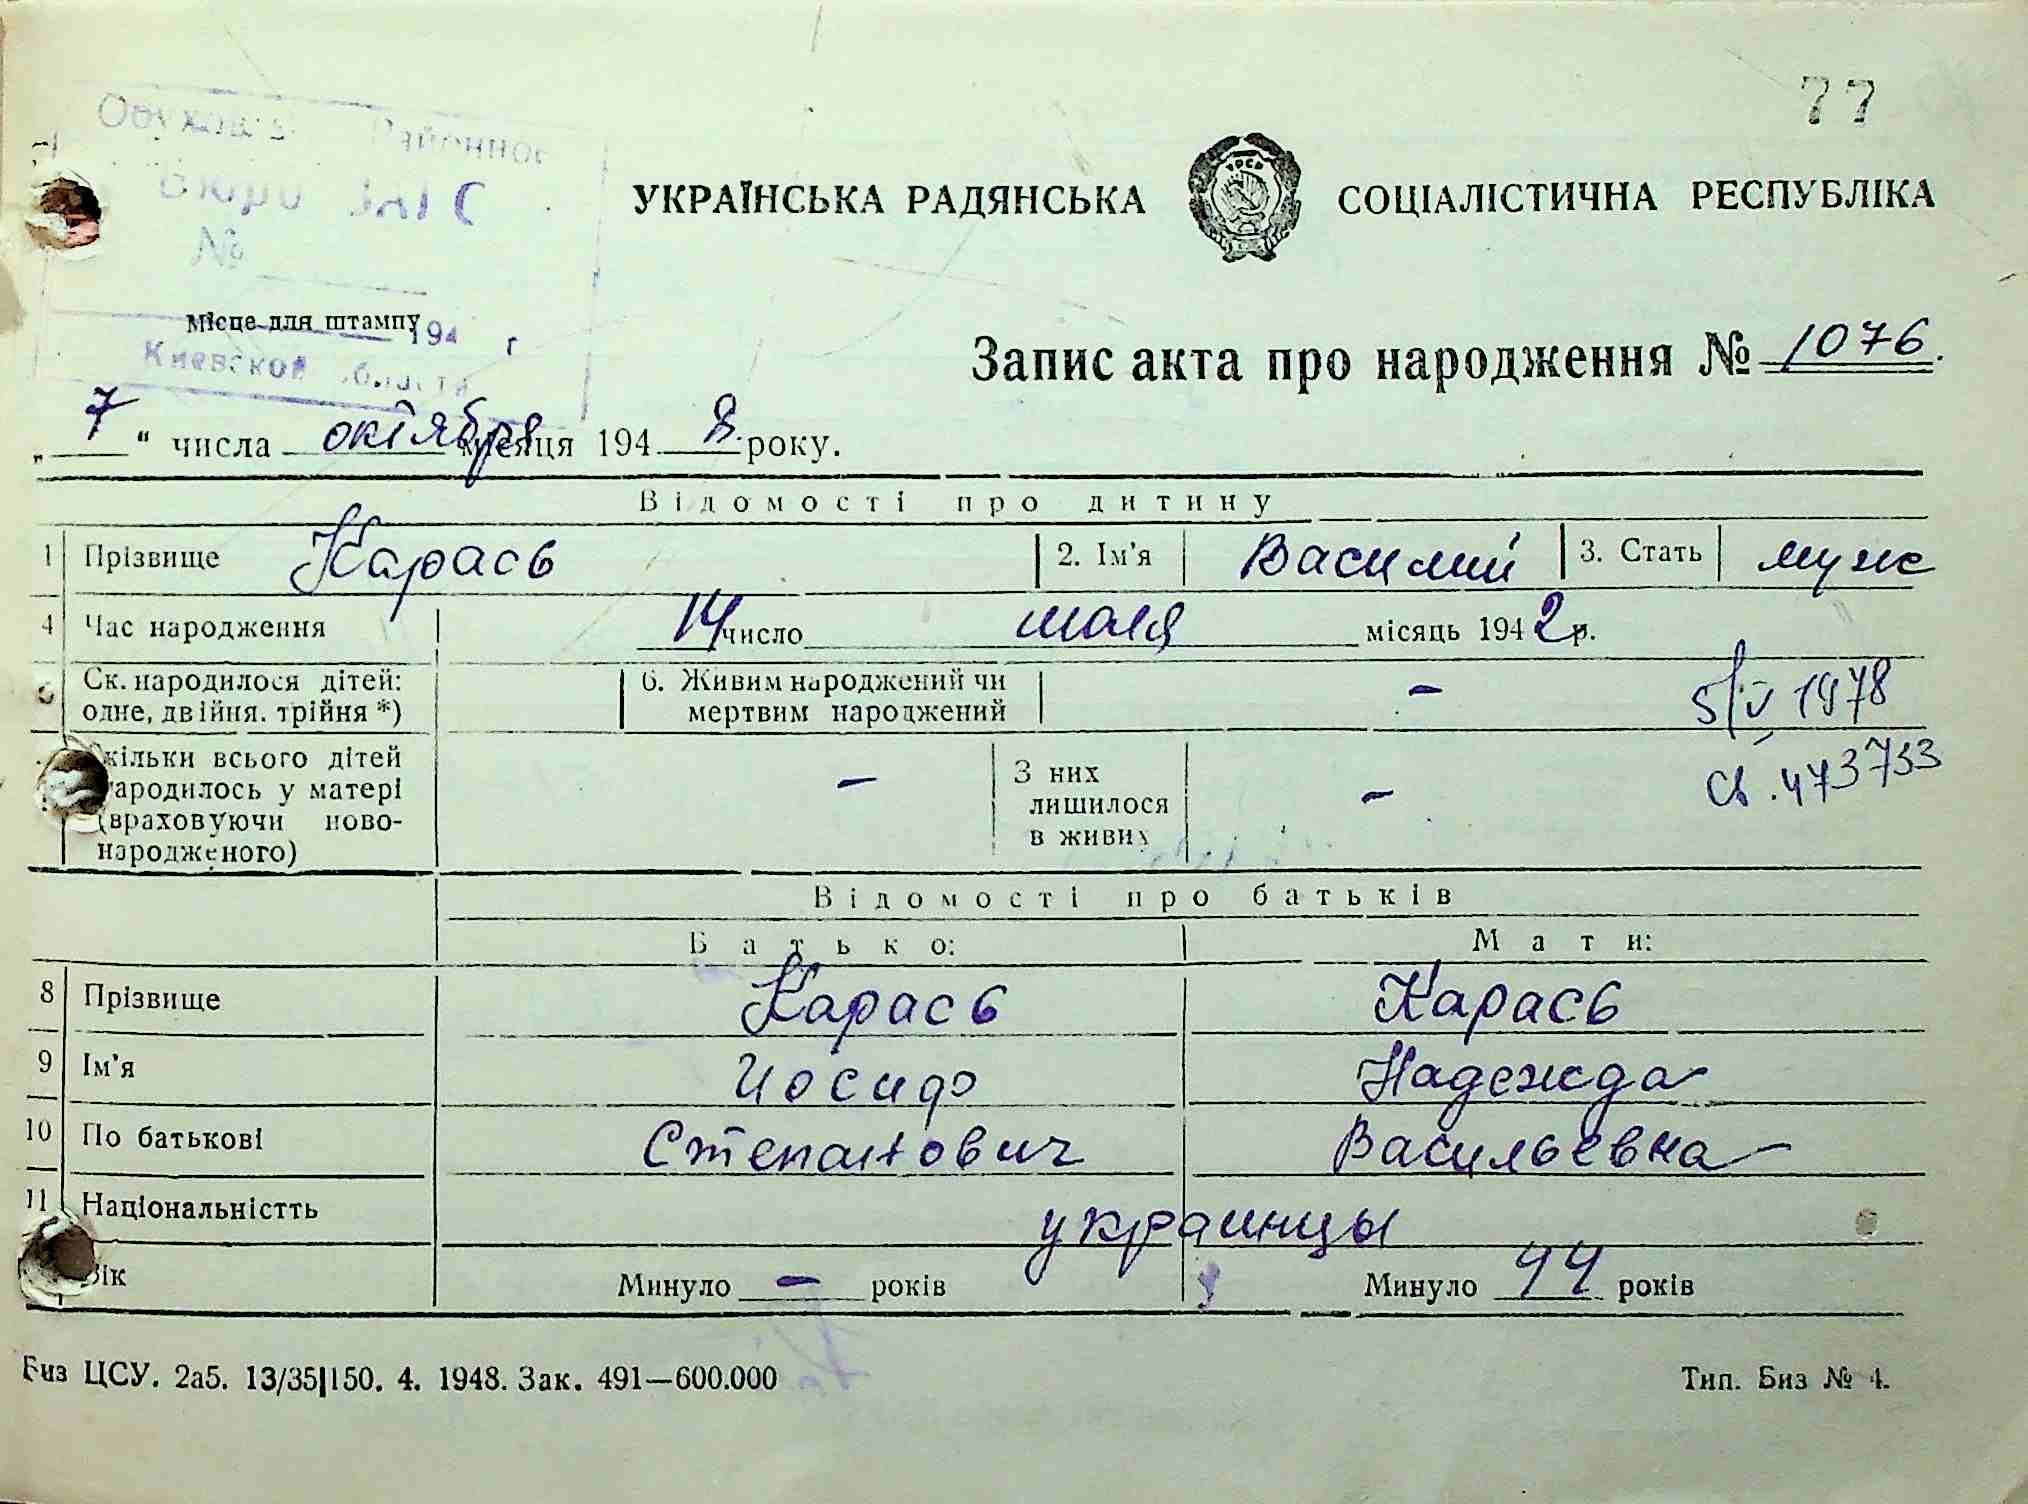 77
Районное
Бюро ЗАГС
№
Місце для штампу
194 г
Киевской области
УКРАЇНСЬКА РАДЯНСЬКА СОЦІАЛІСТИЧНА РЕСПУБЛІКА
Запис акта про народження № 1076.
„7“ числа октября місяця 1948 року.
Відомості про дитину
1 Прізвище Карась 2. Ім’я Василий 3. Стать муж
4 Час народження 14 число июля місяць 1942 р.
Ск. народилося дітей: одне, двійня. трійня *) 6. Живим народжений чи мертвим народжений - 5/V 1978
кільки всього дітей народилось у матері (враховуючи новонародженого) - З них лишилося в живих - св. 473733
Відомості про батьків
Батько: Мати:
8 Прізвище Карась Карась
9 Ім’я Иосиф Надежда
10 По батькові Степанович Васильевна
11 Національністть украинцы
Вік Минуло - років Минуло 44 років
Биз ЦСУ. 2а5. 13/35|150. 4. 1948. Зак. 491—600.000 Тип. Биз № 4.